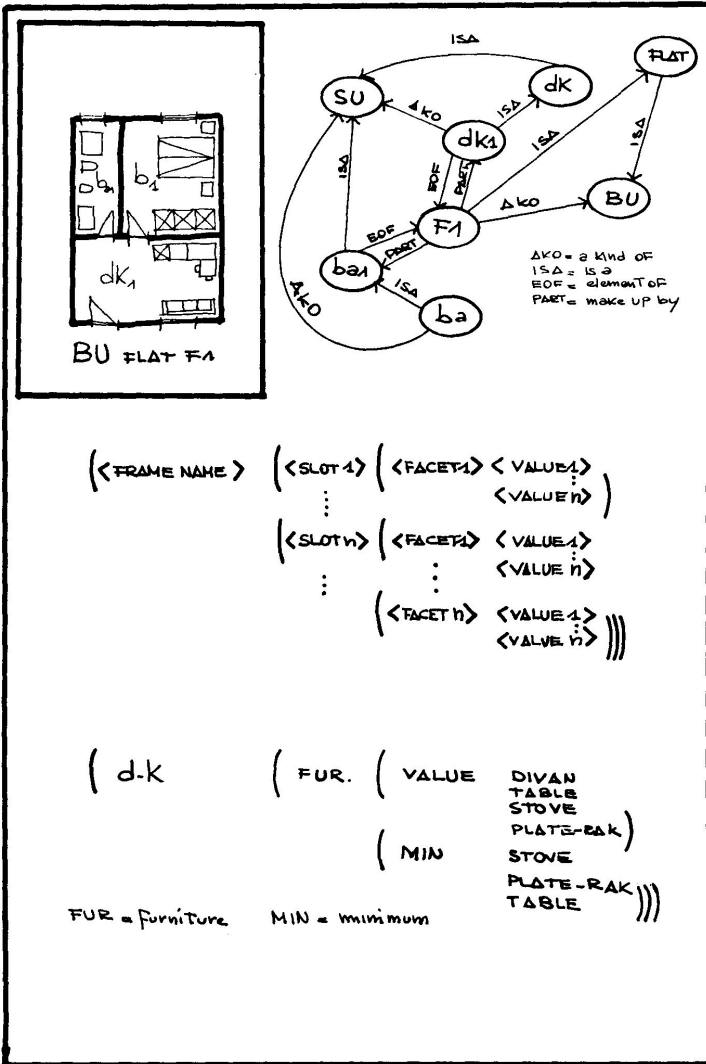 ba b1
dk1
BU FLAT F1
ISA
SU
dK
FLAT
AKO
ISA
dk1
ISA
ISA
ISA
EOF
PART
BU
AKO
F1
EOF
PART
ba1
AKO
ISA
ba
AKO = a kind of
ISA = is a
EOF = element of
PART = make up by
(<FRAME NAME> (<SLOT 1> (<FACET1> <VALUE1>
⋮ ⋮
<VALUE n>)
(<SLOT n> (<FACET1> <VALUE 1>
⋮ ⋮ ⋮
<VALUE n>
(<FACET n> <VALUE 1>
⋮
<VALUE n>))))
( d-K ( FUR. ( VALUE DIVAN
TABLE
STOVE
PLATE-RAK)
( MIN STOVE
PLATE-RAK
TABLE )))
FUR = furniture MIN = minimum